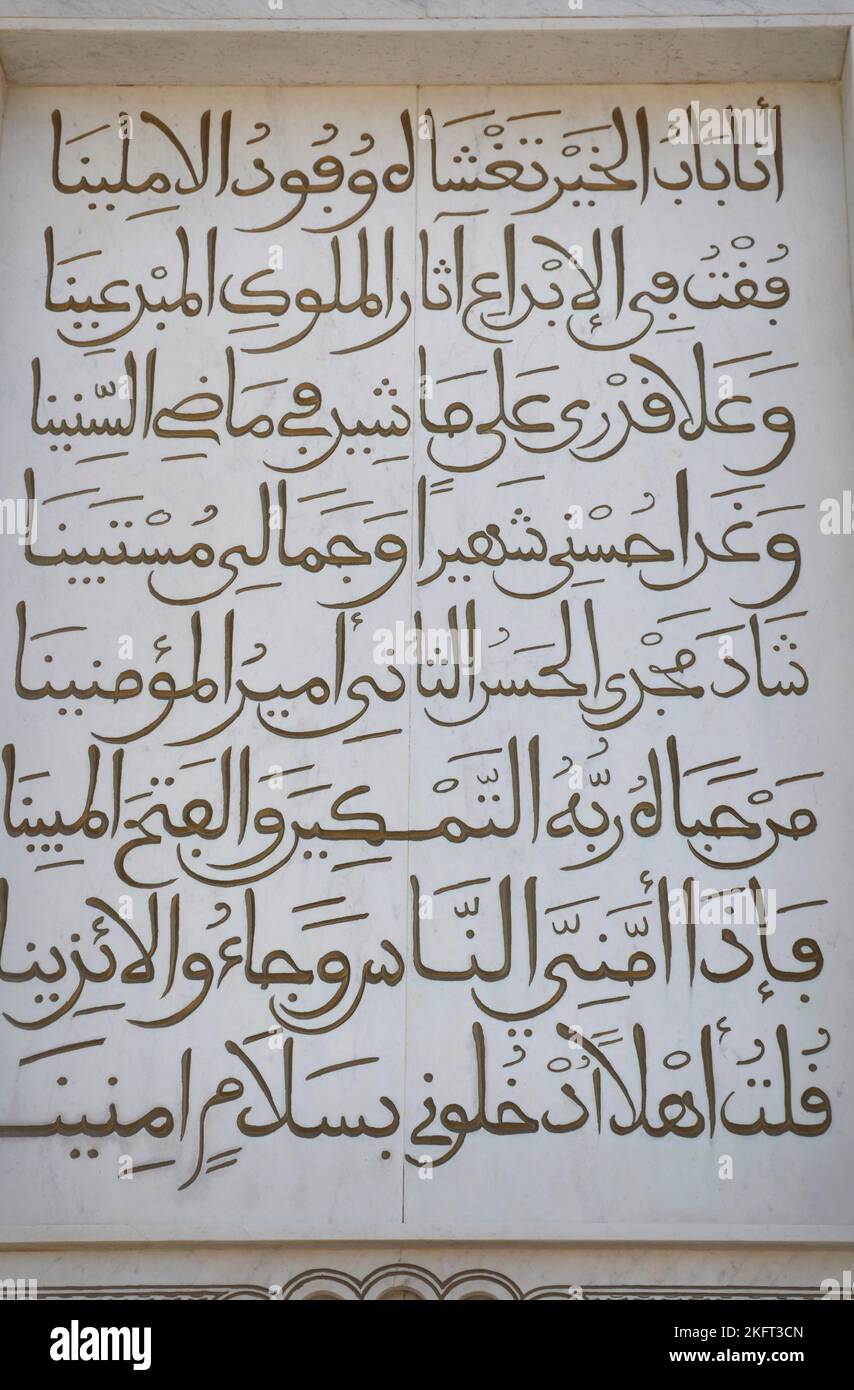 أنا باب الخير تغشاه وفود الاملينا
فقت في الإبداع آثار الملوك المبدعينا
وعلا قدري على ما شيد في ماضي السنينا
وغدا حسني شهيرا وجمالي مستبينا
شاد مجدي الحسن الثاني أمير المؤمنينا
من حباه ربه التمكين والفتح المبينا
فإذا أمني الناس وجاءوا لائذينا
قلت أهلا أدخلوني بسلام امنينا
alamy
Image ID: 2KFT3CN
www.alamy.com